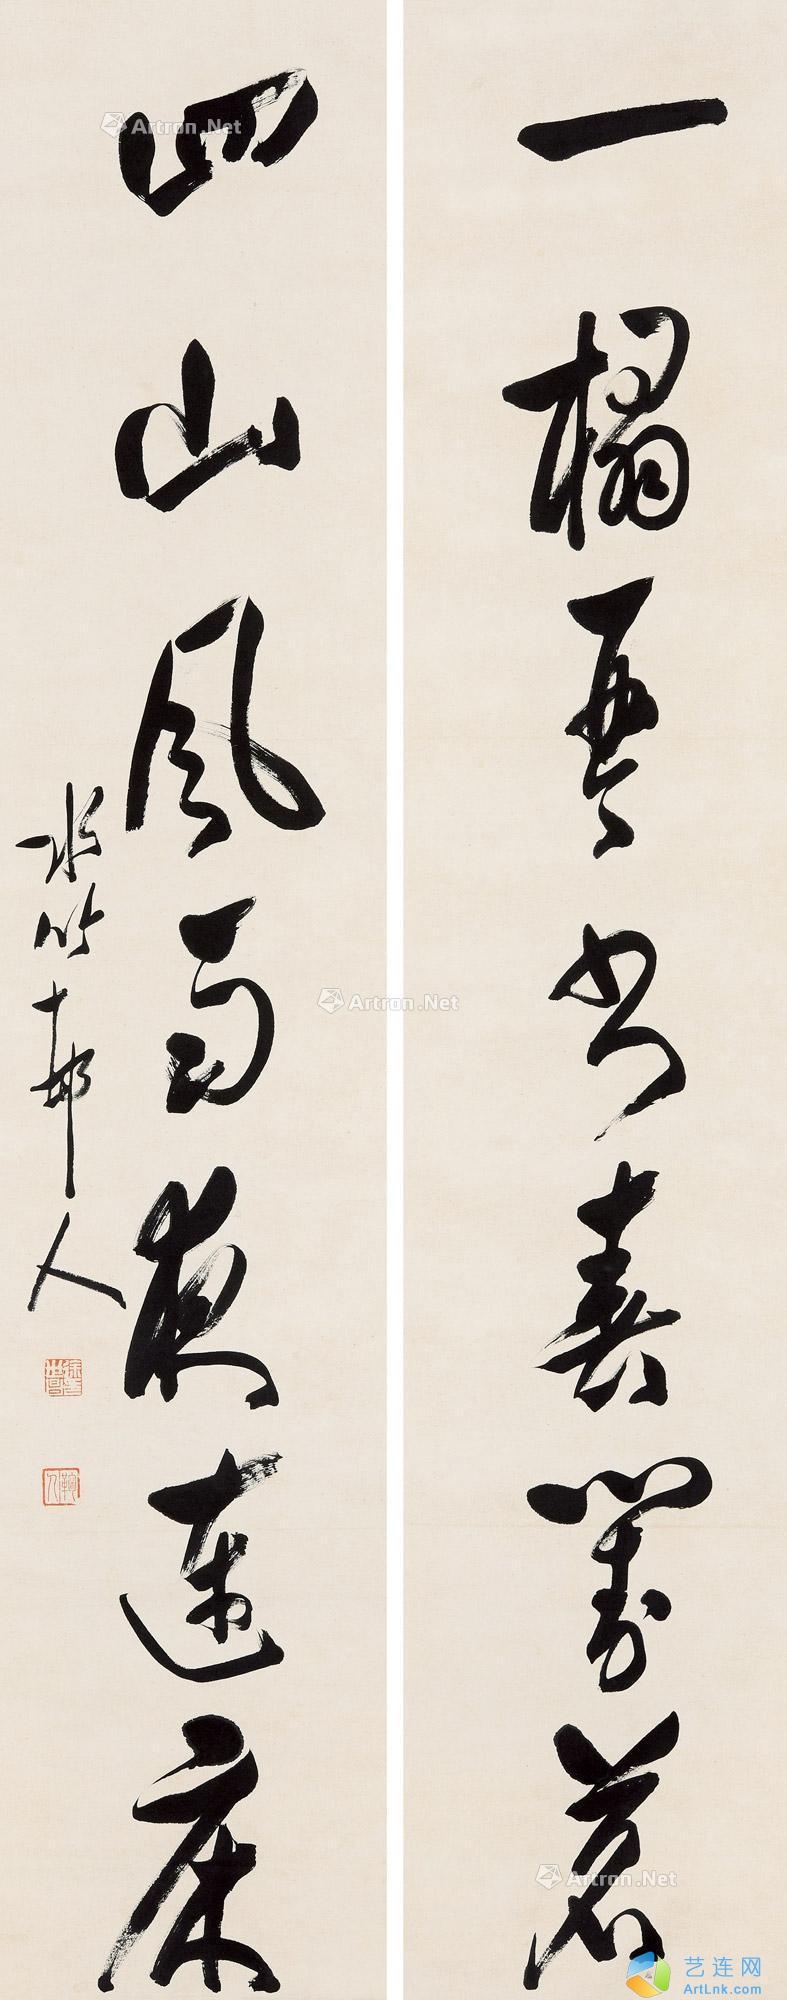 一榻琴書春鬪茗
四山風雨夜連床
水竹邨人
徐世昌印
鞠人
Artron.Net
Artron.Net
Artron.Net
艺连网
ArtLnk.com